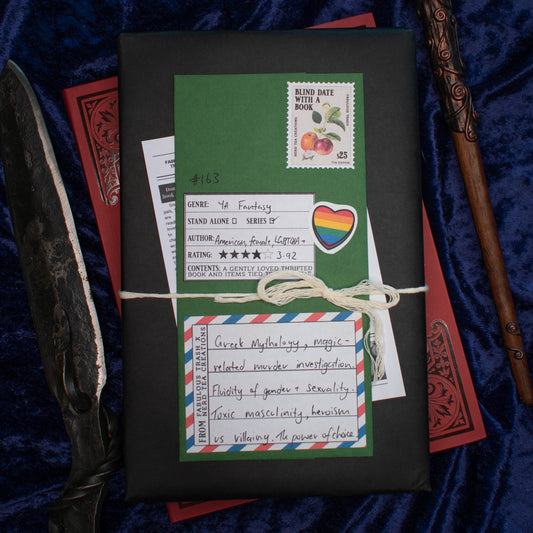 BLIND DATE
WITH A
BOOK
NERD TEA CREATIONS
FABULOUS TRASH
$25
#163
GENRE: YA Fantasy
STAND ALONE ☐ SERIES ☑
AUTHOR: American, female, LGBTQIA+
RATING: ★★★★☆ 3.92
CONTENTS: A GENTLY LOVED THRIFTED
BOOK AND ITEMS TIED TO
FROM FABULOUS TRASH X
NERD TEA CREATIONS
Greek Mythology, magic-
related murder investigation.
Fluidity of gender + sexuality.
Toxic masculinity, heroism
vs villainy. The power of choice.